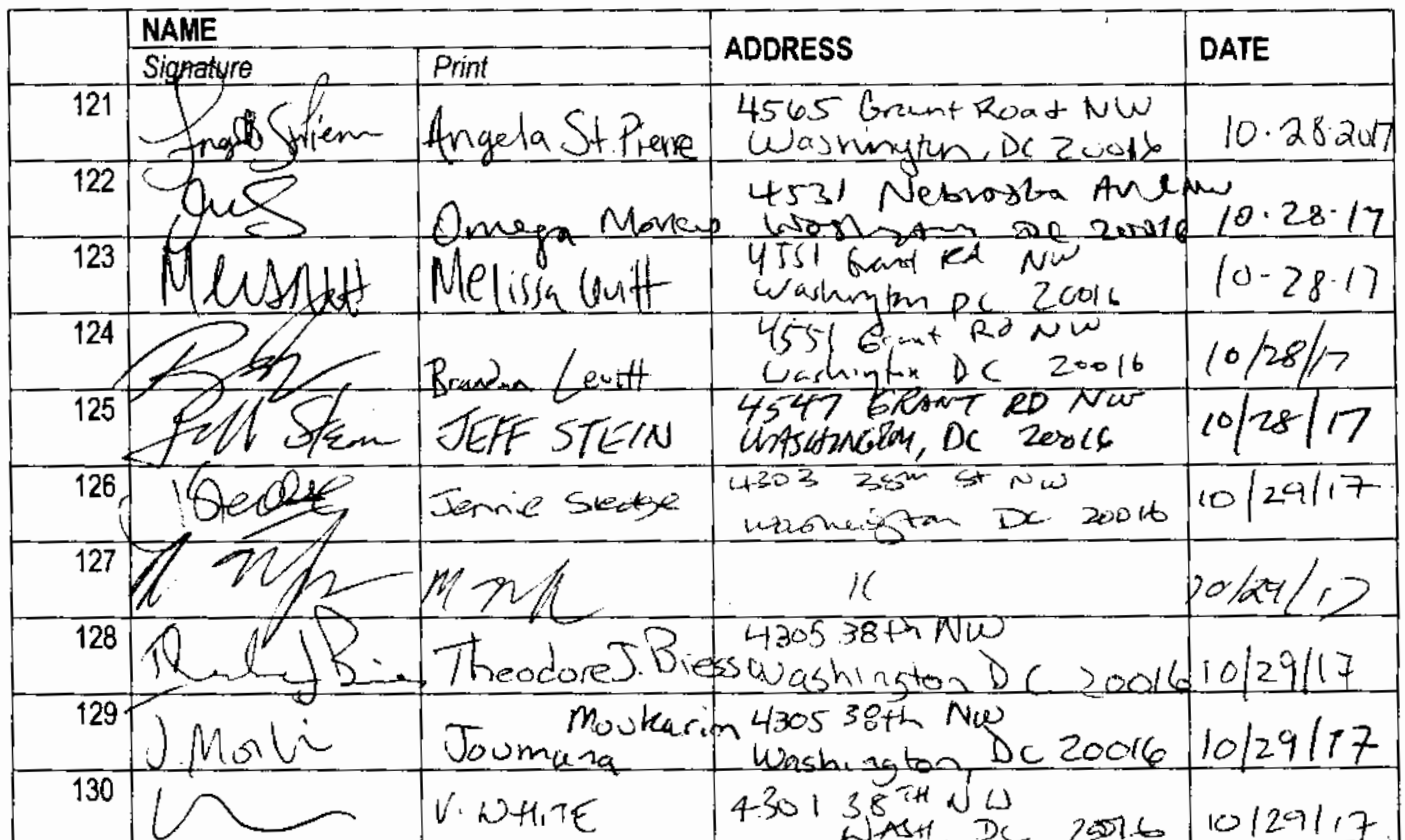 NAME ADDRESS DATE
Signature Print
121 Angela St. Pierre 4565 Grant Road NW
Washington, DC 20016 10.28.2017
122 4531 Nebraska Ave NW
Omega Washington DC 20016 10.28.17
123 Melissa Levitt 4551 Grant Rd NW
Washington DC 20016 10-28-17
124 4551 Grant Rd NW
Brandon Levitt Washington DC 20016 10/28/17
125 Jeff Stein JEFF STEIN 4547 GRANT RD NW
WASHINGTON, DC 20016 10/28/17
126 Jennie Sledge 4303 38th St NW
Washington DC 20016 10/29/17
127 M 10/29/17
128 Theodore J. Biess 4305 38th NW
Washington DC 20016 10/29/17
129 Moukarim 4305 38th NW
Joumana Washington DC 20016 10/29/17
130 V. WHITE 4301 38TH NW
WASH DC 20016 10/29/17